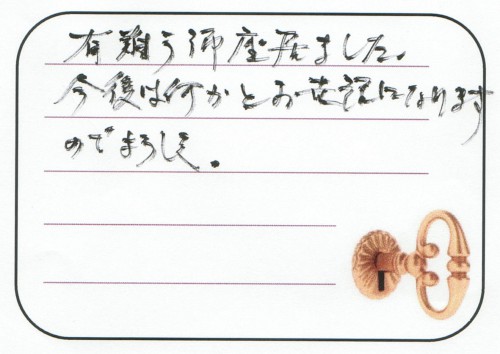 有難う御座居ました。
今後は何かとお世話になります
のでよろしく。